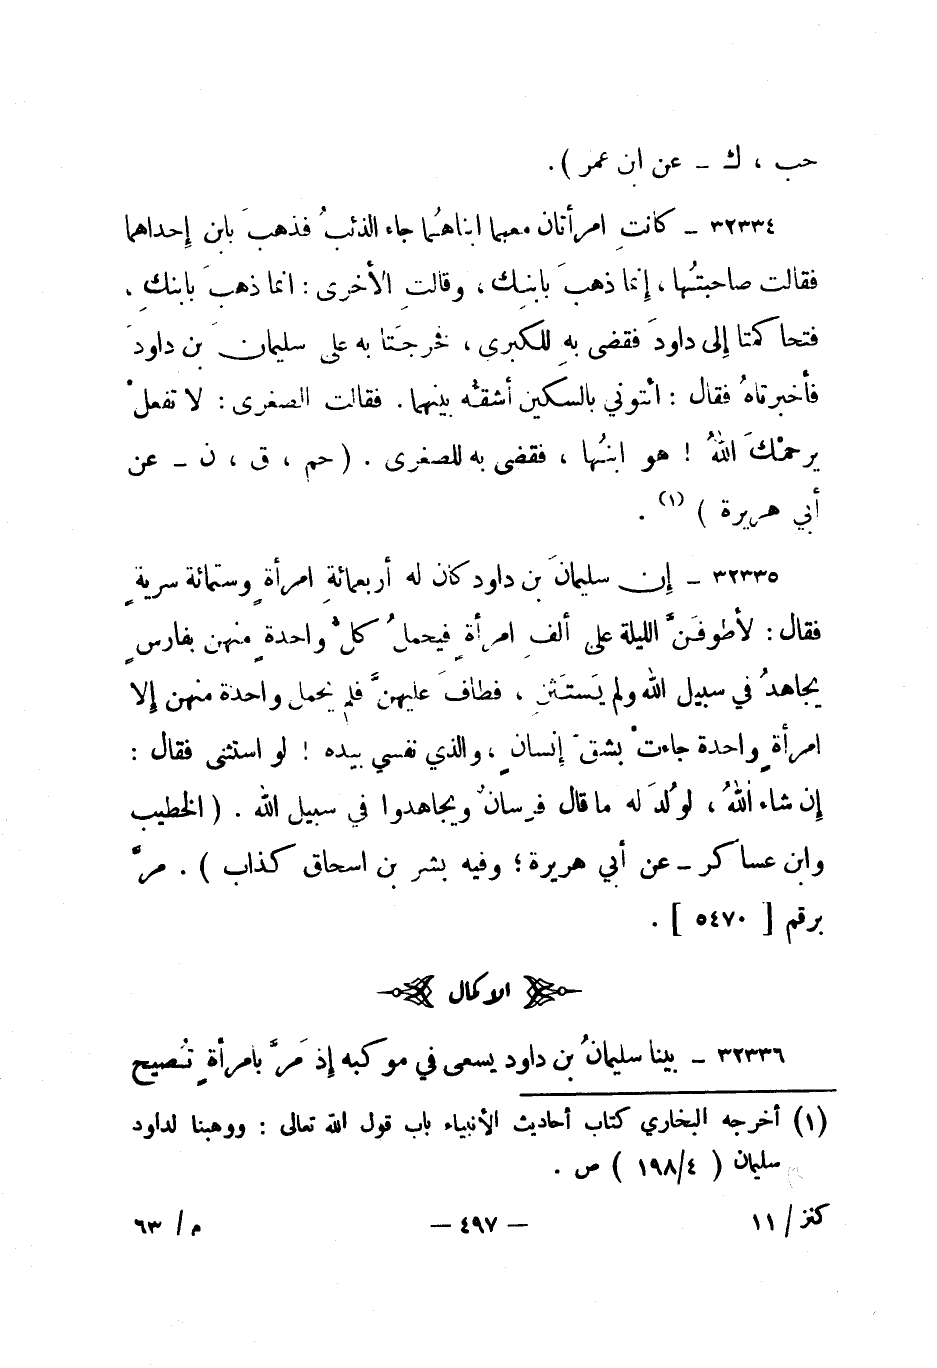 حب ، ك ـ عن ابن عمر ) .
٣٢٣٣٤ ـ كانتِ امرأتان معهما ابناهُما جاء الذئبُ فذهبَ بابن إحداهما
فقالت صاحبتُها ، إنما ذهبَ بابنِك ، وقالتِ الأخرى : انما ذهبَ بابنكِ .
فتحاكمتا إلى داودَ فقضى بهِ للكبرى ، فخرجتَا به على سليمان بن داودَ
فأخبرتاهُ فقال : ائتوني بالسكين أشقُّه بينهما . فقالت الصغرى : لا تفعلْ
يرحمْكَ اللهُ ! هو ابنُها ، فقضى به للصغرى . ( حم ، ق ، ن ـ عن
أبي هريرة ) (١) .
٣٢٣٣٥ ـ إن سليمانَ بن داود كان له أربعمائةِ امرأةٍ وستمائة سريةٍ
فقال : لأطوفَنَّ الليلة على ألفِ امرأةٍ فيحملُ كلُّ واحدةٍ منهن بفارسٍ
يجاهدُ في سبيل الله ولم يَستَثنِ ، فطافَ عليهنَّ فلم تحمل واحدة منهن إلا
امرأةٍ واحدة جاءتْ بشقِّ إنسانٍ ، والذي نفسي بيده ! لو استثنى فقال :
إن شاء اللهُ ، لوُلدَ له ما قال فرسانٌ ويجاهدوا في سبيل الله . ( الخطيب
وابن عساكر ـ عن أبي هريرة ؛ وفيه بشر بن اسحاق كذاب ) . مرَّ
برقم [ ٥٤٧٠ ] .
الاكمال
٣٢٣٣٦ ـ بينا سليمانُ بن داود يسعى في موكبه إذ مَرَّ بامرأةٍ تُصيح
(١) أخرجه البخاري كتاب أحاديث الأنبياء باب قول الله تعالى : ووهبنا لداود
سليمان ( ١٩٨/٤ ) ص .
كنز / ١١ — ٤٩٧ — م / ٦٣